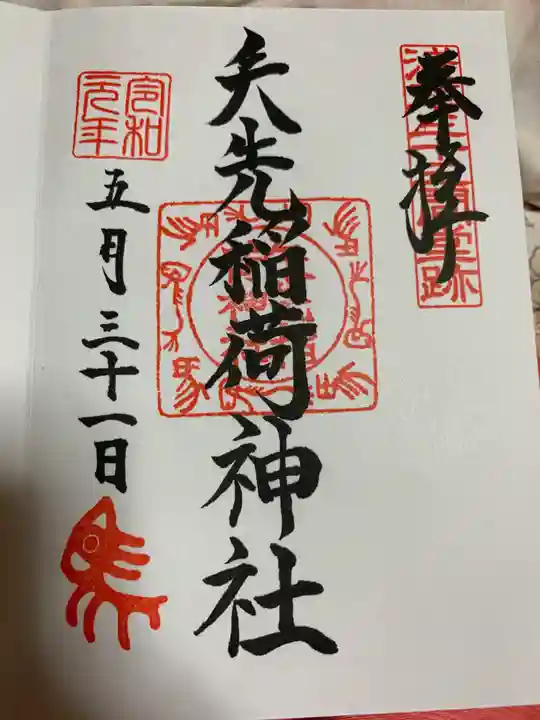 奉拝
矢先稲荷神社
令和元年
五月三十一日